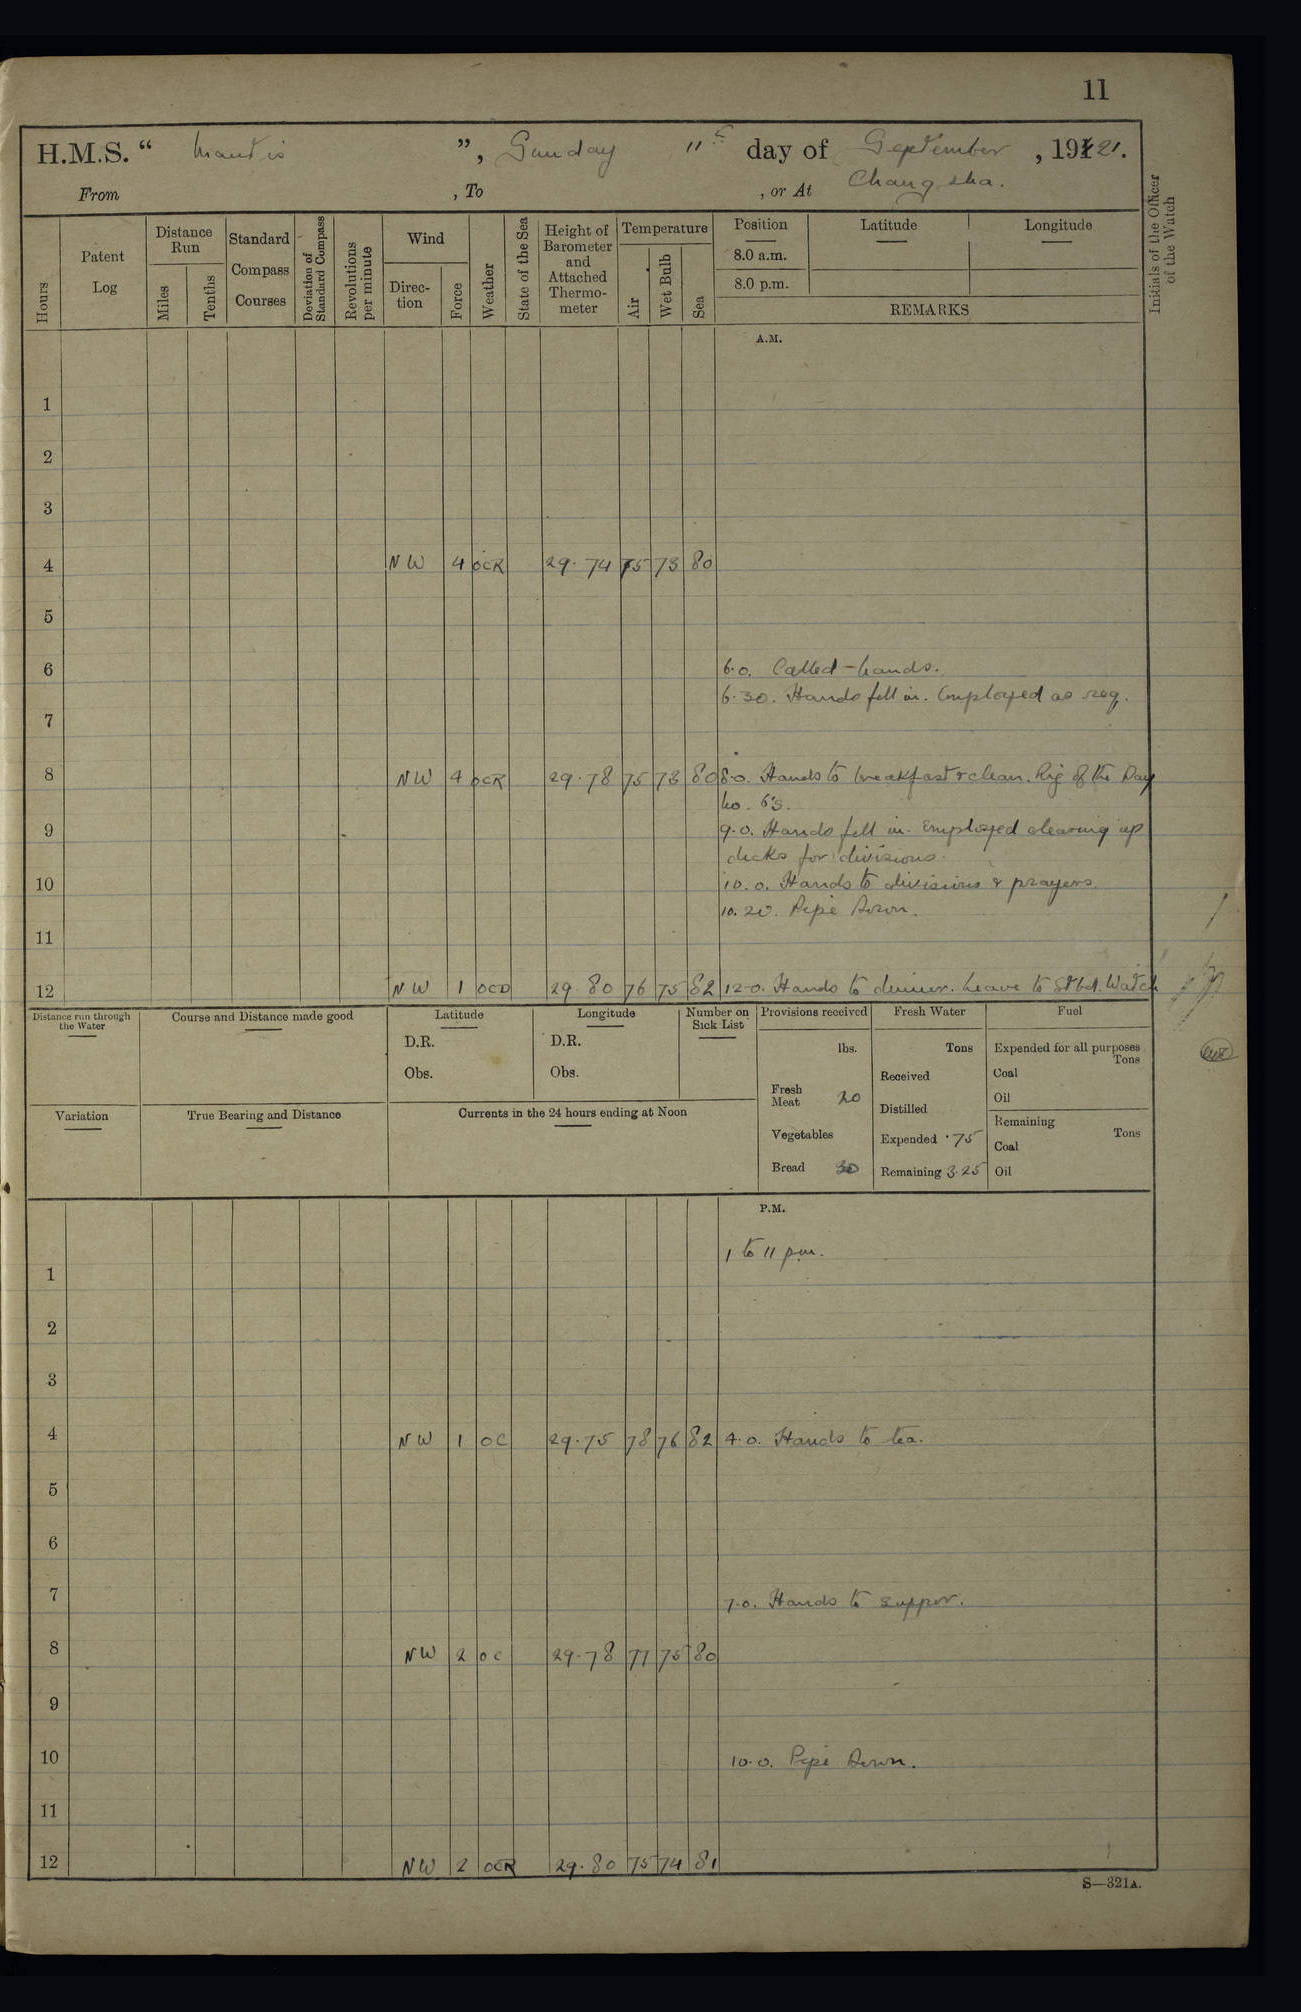 11
H.M.S. “ Mantis ”, Sunday 11th day of September , 1921.
From , To , or At Changsha.
Hours
Patent Log
Distance Run
Miles
Tenths
Standard Compass Courses
Deviation of Standard Compass
Revolutions per minute
Wind
Direc-tion
Force
Weather
State of the Sea
Height of Barometer and Attached Thermo-meter
Temperature
Air
Wet Bulb
Sea
Position Latitude Longitude
8.0 a.m.
8.0 p.m.
REMARKS
Initials of the Officer of the Watch
A.M.
1
2
3
4 NW 4 OCR 29.74 75 73 80
5
6 6.0. Called hands.
6.30. Hands fell in. Employed as req.
7
8 NW 4 OCR 29.78 75 73 80 8.0. Hands to breakfast & clean. Rig of the Day
No. 6's.
9 9.0. Hands fell in. Employed clearing up
decks for divisions.
10 10.0. Hands to divisions & prayers.
10.20. Pipe Down.
11
12 NW 1 OCD 29.80 76 75 82 12.0. Hands to dinner. Leave to Stbd. Watch
Distance run through the Water
Course and Distance made good
Latitude
D.R.
Obs.
Longitude
D.R.
Obs.
Number on Sick List
Provisions received
lbs.
Fresh Meat 20
Vegetables
Bread 30
Fresh Water
Tons
Received
Distilled
Expended .75
Remaining 3.25
Fuel
Expended for all purposes
Tons
Coal
Oil
Remaining
Tons
Coal
Oil
Variation
True Bearing and Distance
Currents in the 24 hours ending at Noon
P.M.
1 to 11 pm.
1
2
3
4 NW 1 OC 29.75 78 76 82 4.0. Hands to tea.
5
6
7 7.0. Hands to supper.
8 NW 2 OC 29.78 77 75 80
9
10 10.0. Pipe Down.
11
12 NW 2 OCR 29.80 75 74 81
S—321A.